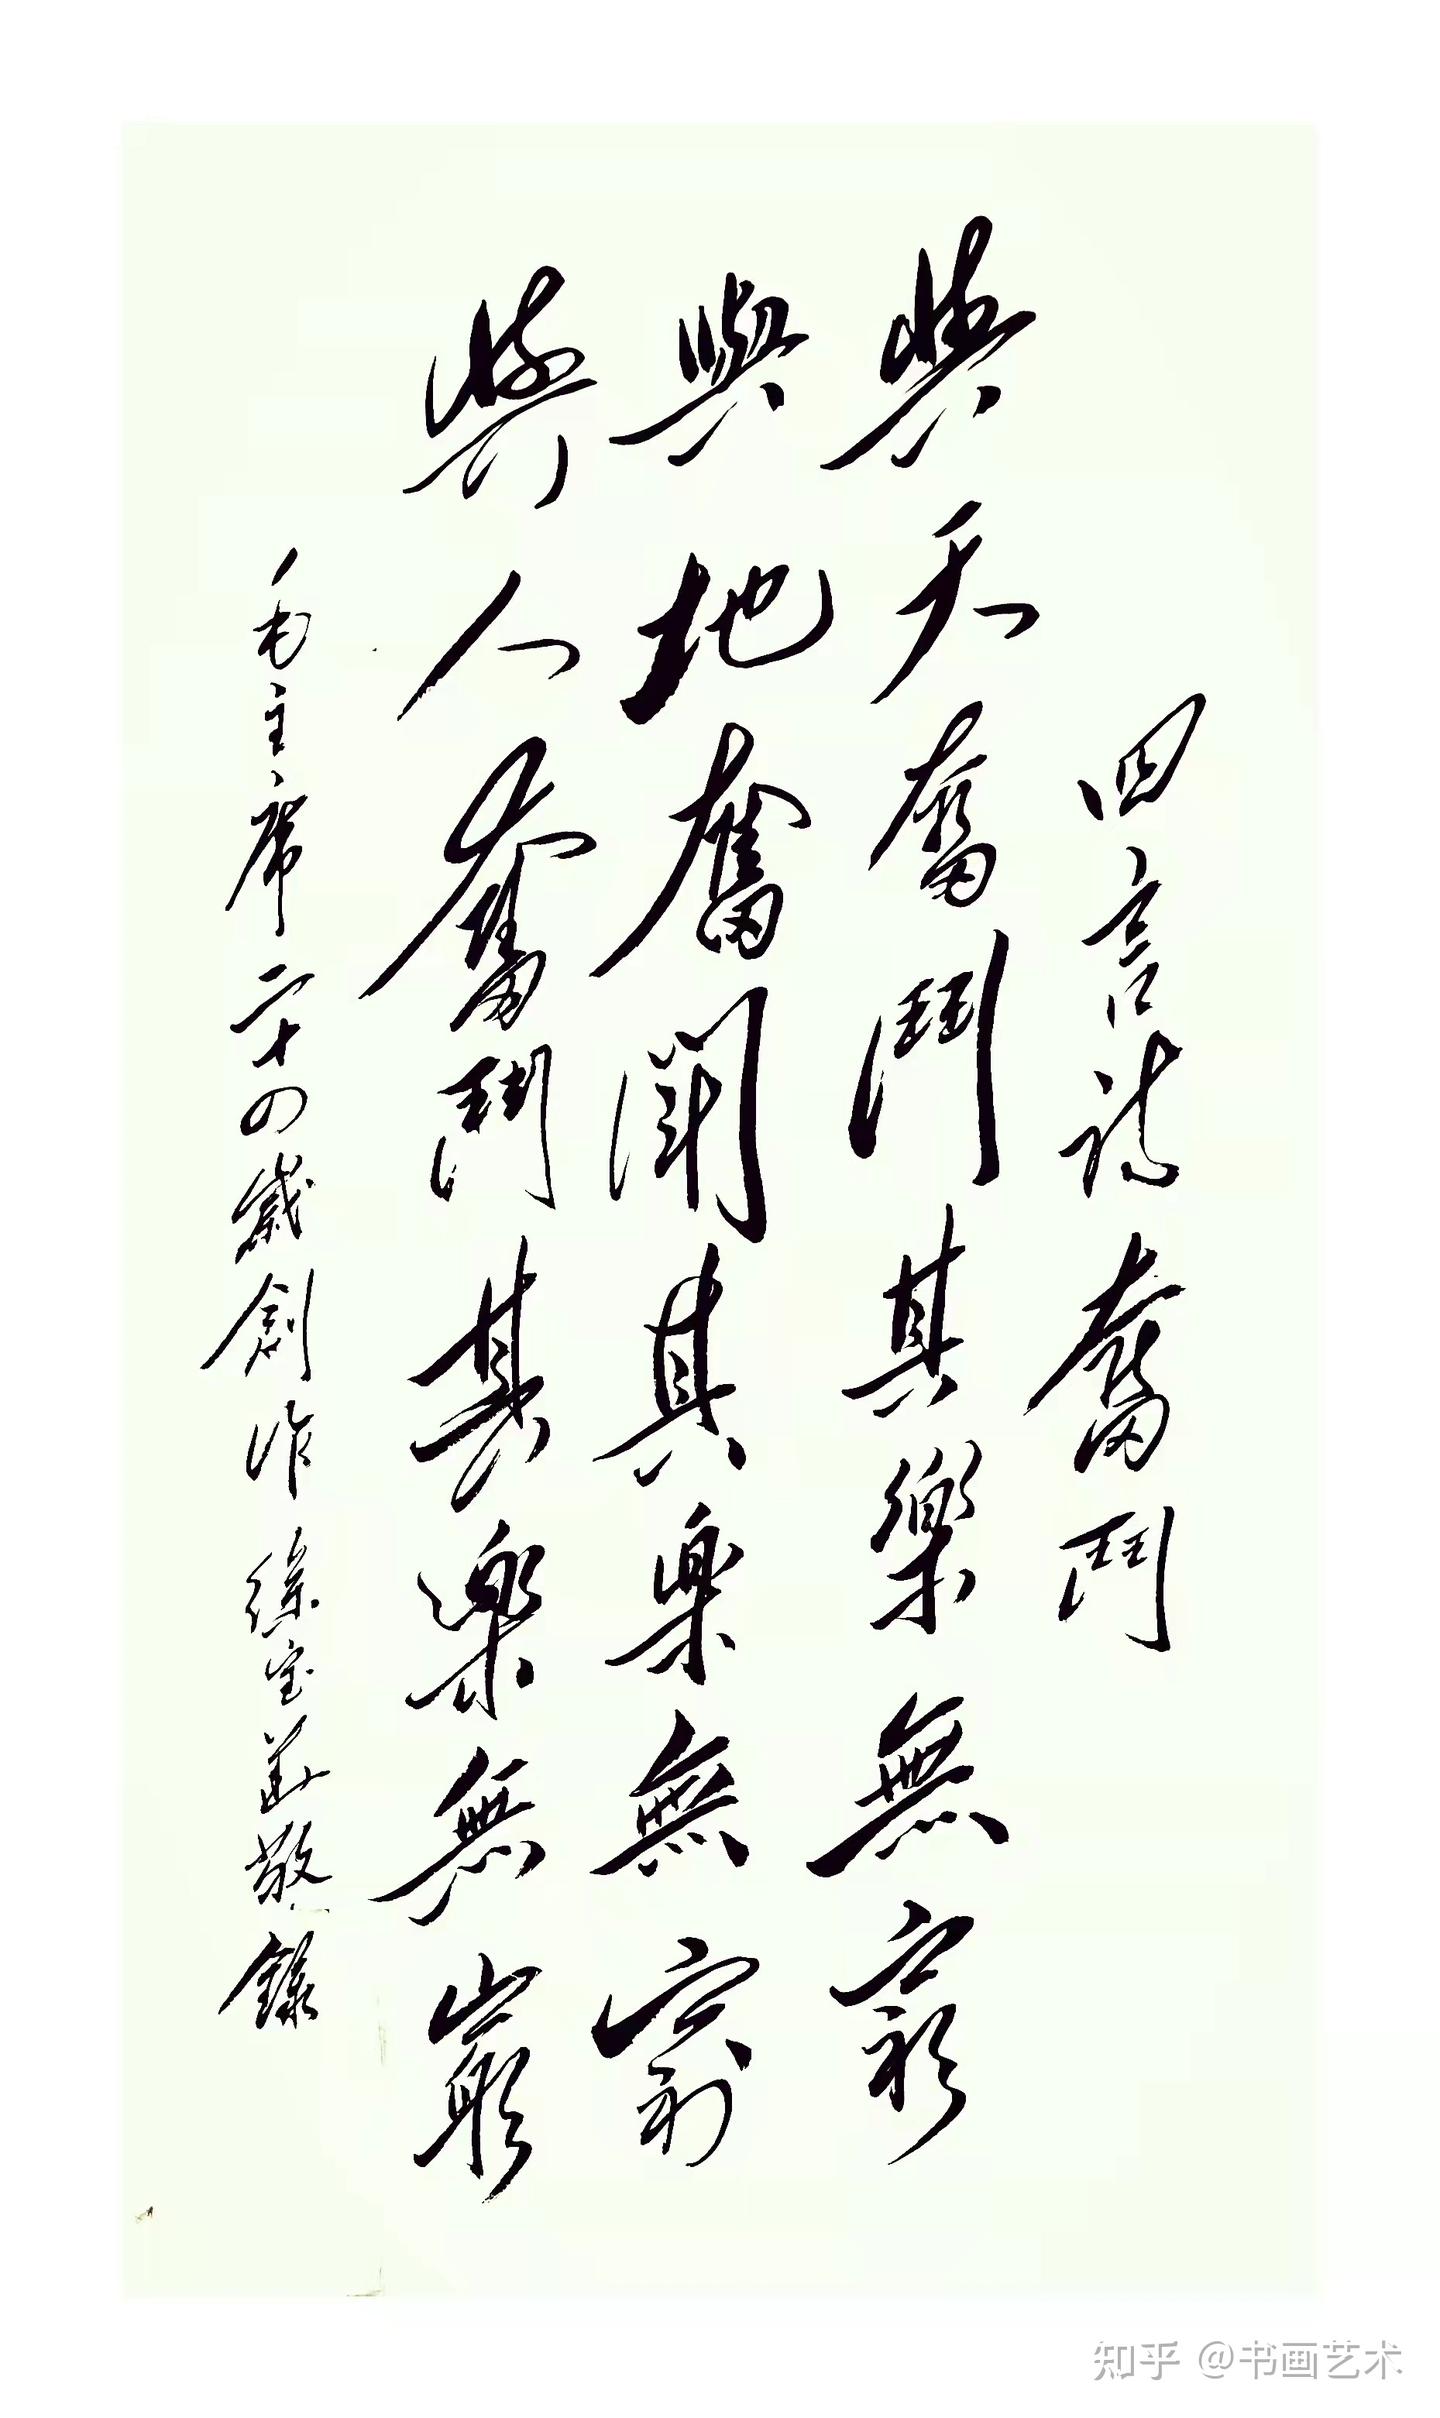 四言詩奮鬥
與天奮鬥其樂無窮
與地奮鬥其樂無窮
與人奮鬥其樂無窮
毛主席二十四歲創作 徐宝 敬錄
知乎 @书画艺术